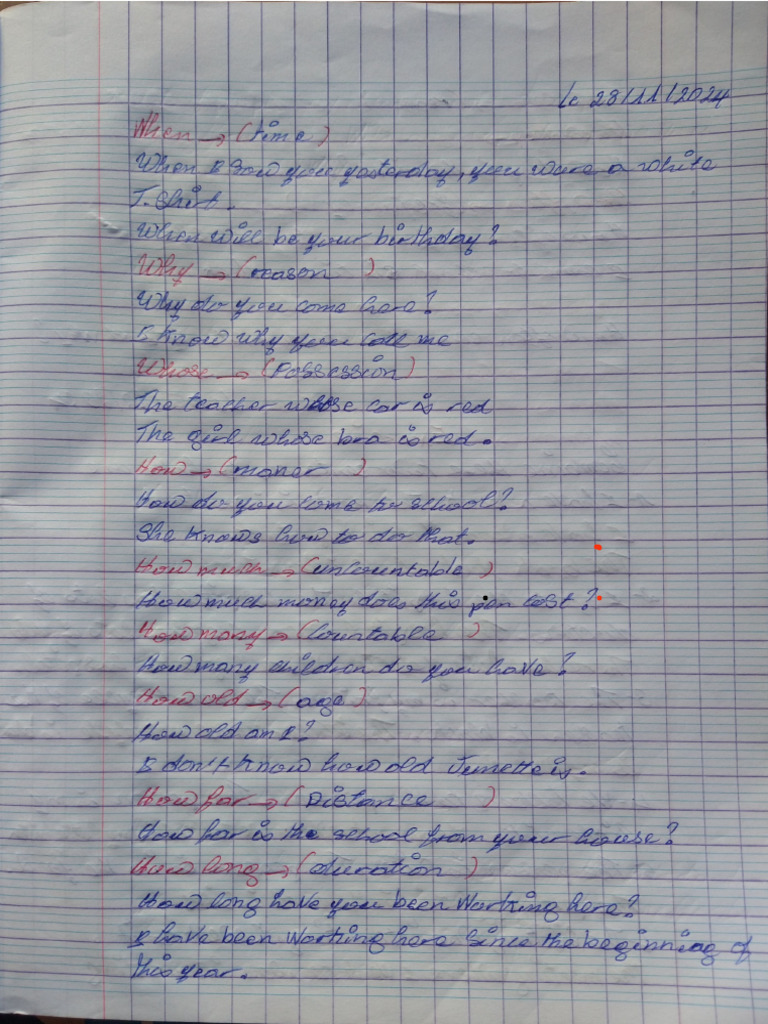 le 28/11/2024
When → (time)
When I saw you yesterday, you wore a white
T. Shirt.
When will be your birthday?
Why → (reason )
Why do you come here?
I know why you call me
Whose → (Possession)
The teacher whose car is red
The girl whose bra is red.
How → (maner )
How do you come to school?
She knows how to do that.
How much → (uncountable )
How much money does this pen cost ?
How many → (Countable )
How many children do you have?
How old → (age)
How old am I?
I don't know how old Junette is.
How far → (Distance )
How far is the school from your house?
How long → (duration )
How long have you been Working here?
I have been Working here Since the beginning of
this year.